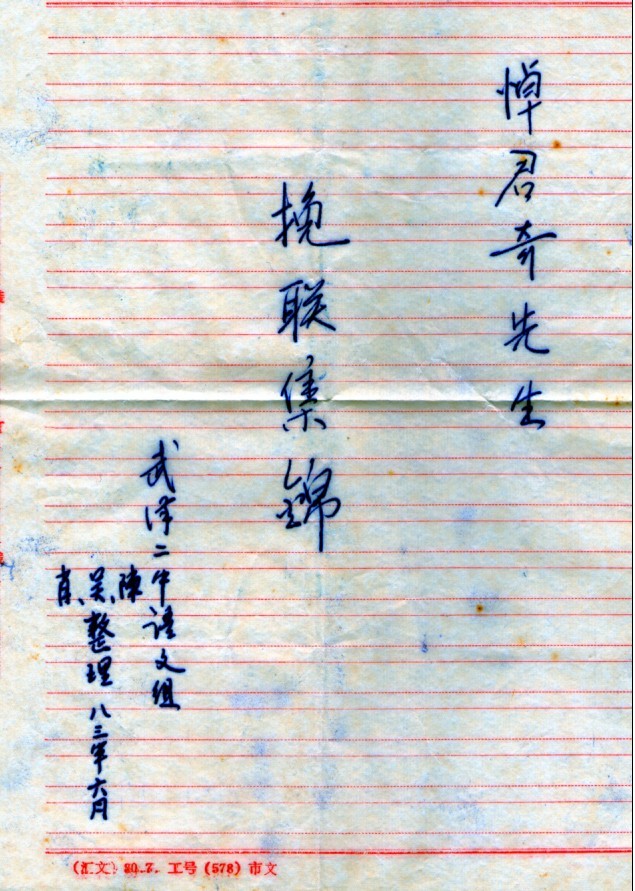 悼君奇先生
挽联集锦
武汉二中语文组
陳、吴、肖整理 八三年六月
(汇文) 80.7. 工号(578) 市文